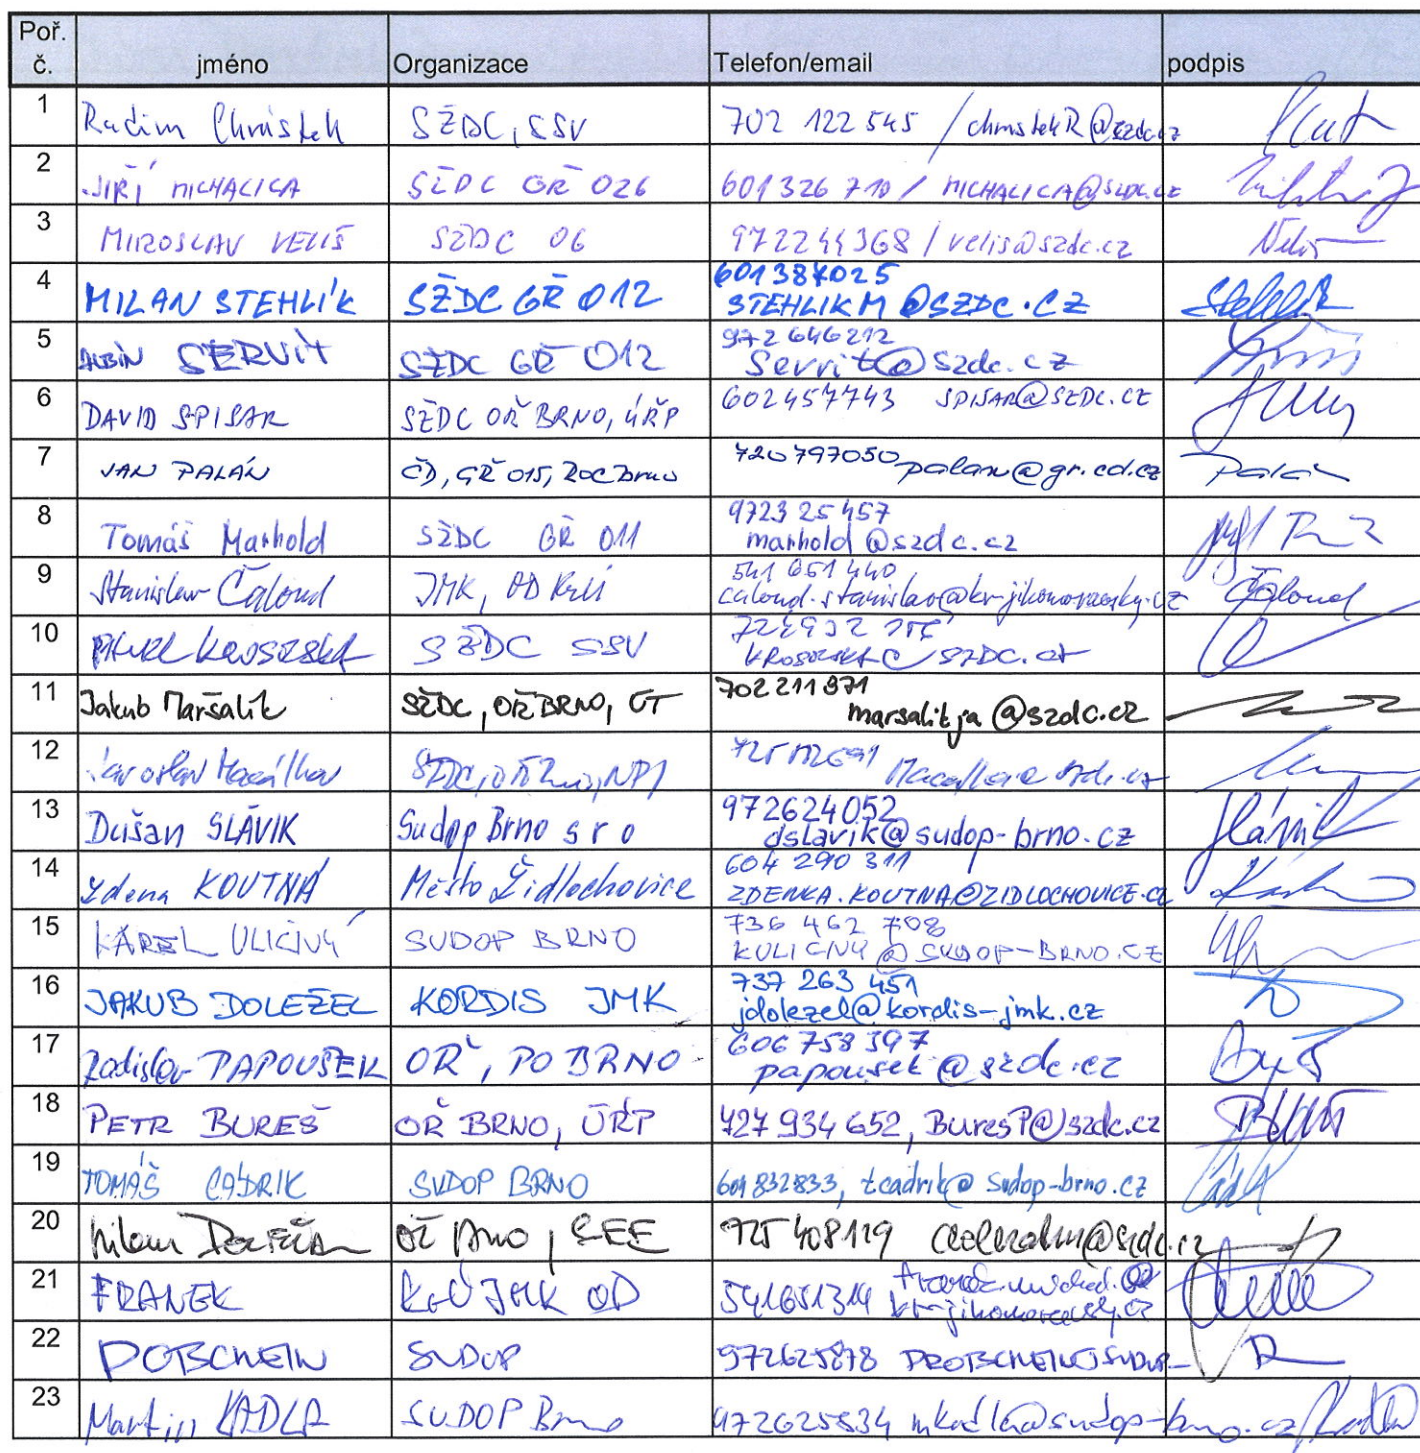 Poř. č. jméno Organizace Telefon/email podpis
1 Radim Chrástek SŽDC, SSV 702 122 545 / chrastekR@szdc.cz
2 JIŘÍ MICHALICA SŽDC GŘ O26 601 326 710 / MICHALICA@SZDC.CZ
3 MIROSLAV VELIŠ SŽDC O6 972244368 / velis@szdc.cz
4 MILAN STEHLÍK SŽDC GŘ O12 601387025
STEHLIKM@SZDC.CZ Stehlík
5 ALBÍN SERVÍT SŽDC GŘ O12 972646212
Servit@szdc.cz
6 DAVID SPISAR SŽDC OŘ BRNO, ÚŘP 602457743 SPISAR@SZDC.CZ
7 JAN PALÁN ČD, GŘ O15, ROC Brno 720797050 palan@gr.cd.cz Palán
8 Tomáš Marhold SŽDC GŘ O11 9723 25 457
marhold@szdc.cz
9 Stanislav Čaloud JMK, OD 541 651 440
caloud.stanislav@kr-jihomoravsky.cz Čaloud
10 SŽDC SSV
11 Jakub Maršalík SŽDC, OŘ BRNO, ÚT 702211871
marsalikja@szdc.cz
12 Jaroslav
13 Dušan SLÁVIK Sudop Brno s r o 972624052
dslavik@sudop-brno.cz Slávik
14 Zdena KOUTNÁ Město Židlochovice 604 290 311
ZDENKA.KOUTNA@ZIDLOCHOVICE.CZ
15 KAREL ULIČNÝ SUDOP BRNO 736 462 708
KULICNY@SUDOP-BRNO.CZ
16 JAKUB DOLEŽEL KORDIS JMK 737 263 451
jdolezel@kordis-jmk.cz
17 Radislav PAPOUŠEK OŘ, PO BRNO 606 758 397
papousek@szdc.cz
18 PETR BUREŠ OŘ BRNO, ÚŘP 727 934 652, BuresP@szdc.cz
19 TOMÁŠ CÁDRIK SUDOP BRNO 601832833, tcadrik@sudop-brno.cz
20 Milan OŘ Brno, SEE 725 408119
21 FRANEK KrÚ JMK OD 541651314
kr-jihomoravsky.cz
22 SUDOP 972625878
23 Martin KADLA SUDOP Brno 972625834 mkadla@sudop-brno.cz